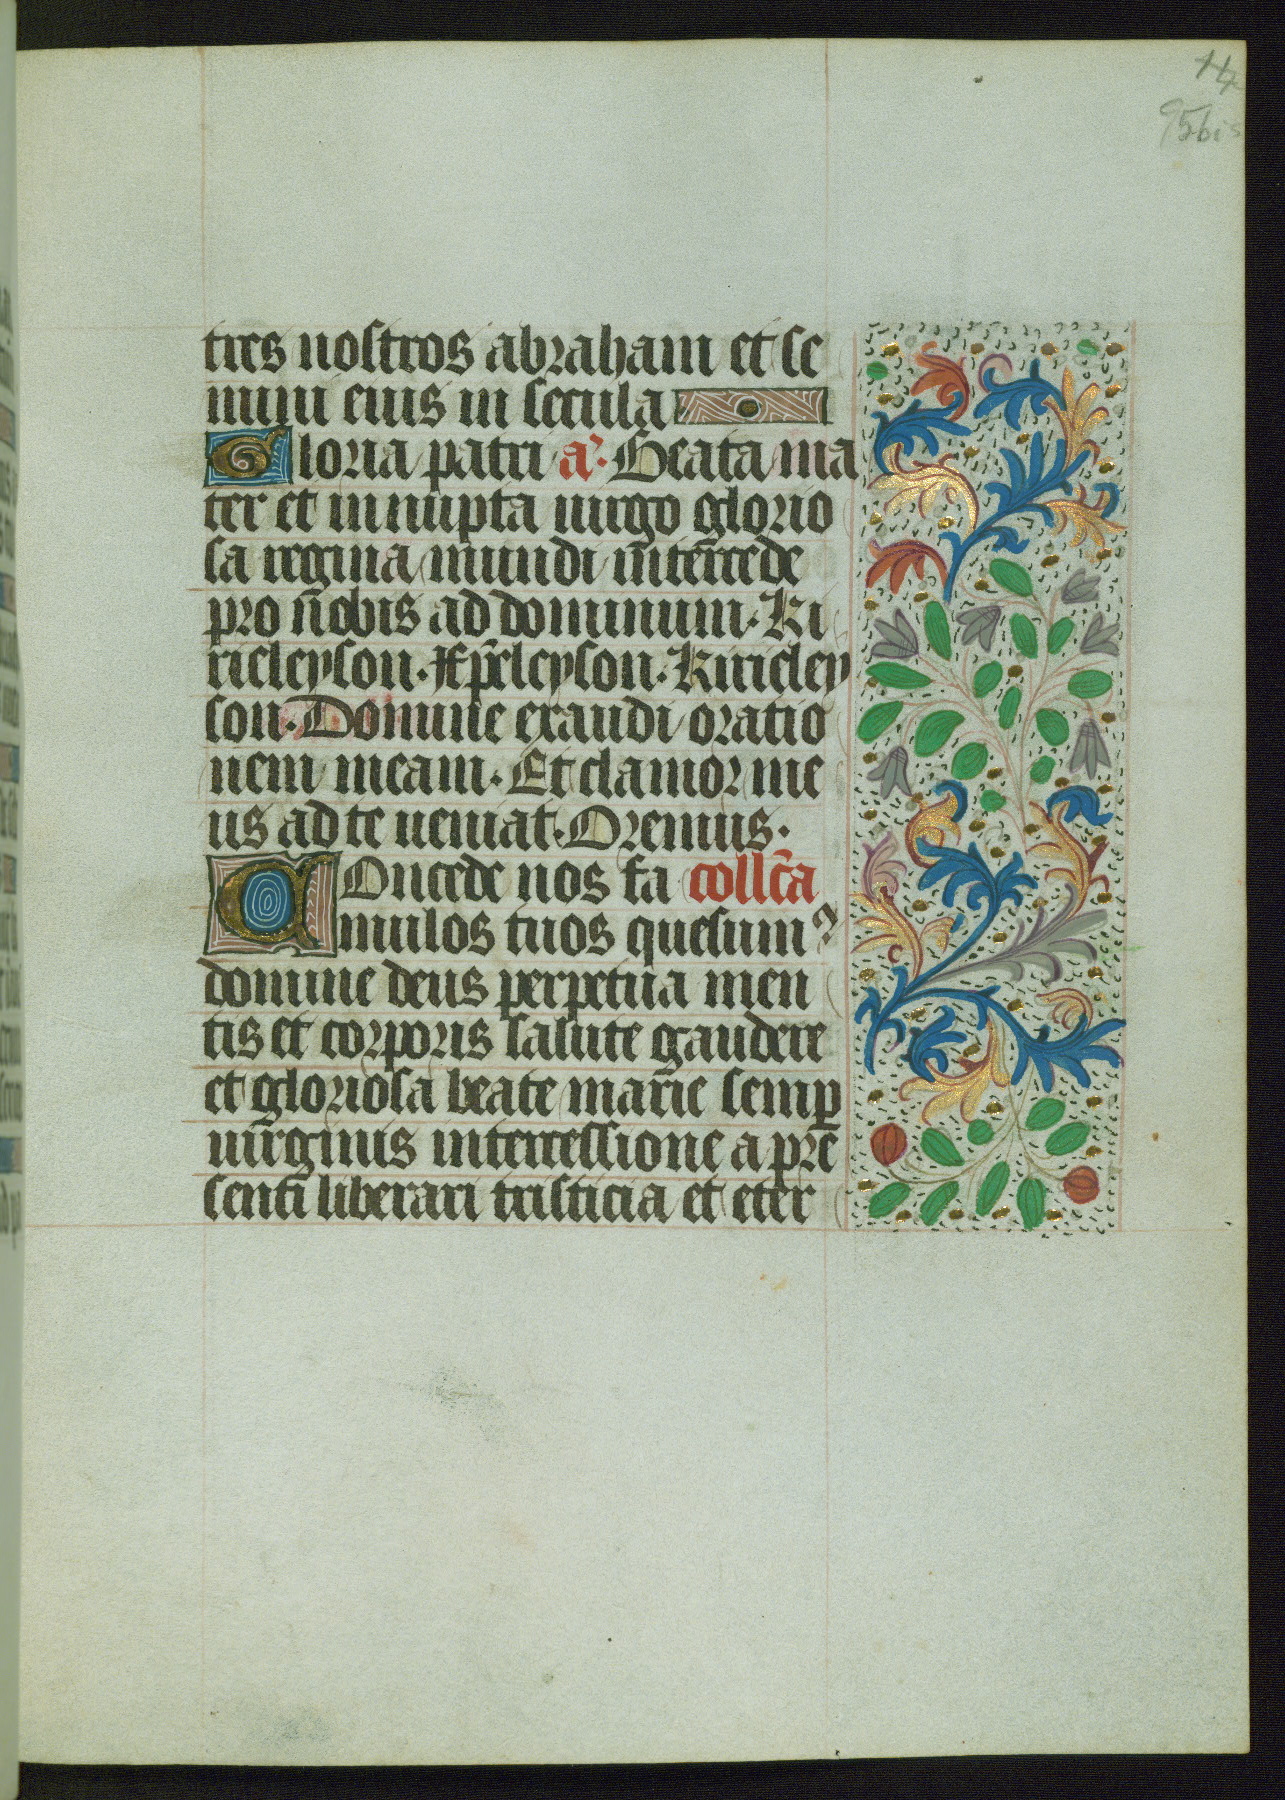 95bis
tres nostros abraham et se
mini eius in secula
Gloria patri a͛· Beata ma
ter et innupta uirgo glorio
sa regina mundi intercede
pro nobis ad dominum· Ki
rieleyson· Xp̄eleyson· Kirieley
son· Domine exaudi oratio
nem meam· Et clamor me
us ad te ueniat· Oremus·
Concede nos fa coll̄ca
mulos tuos quesum?
domine deus perpetua men
tis et corporis salute gaudere
et gloriosa beate marie semp̄
uirginis intercessione a pre
senti liberari tristicia et eter